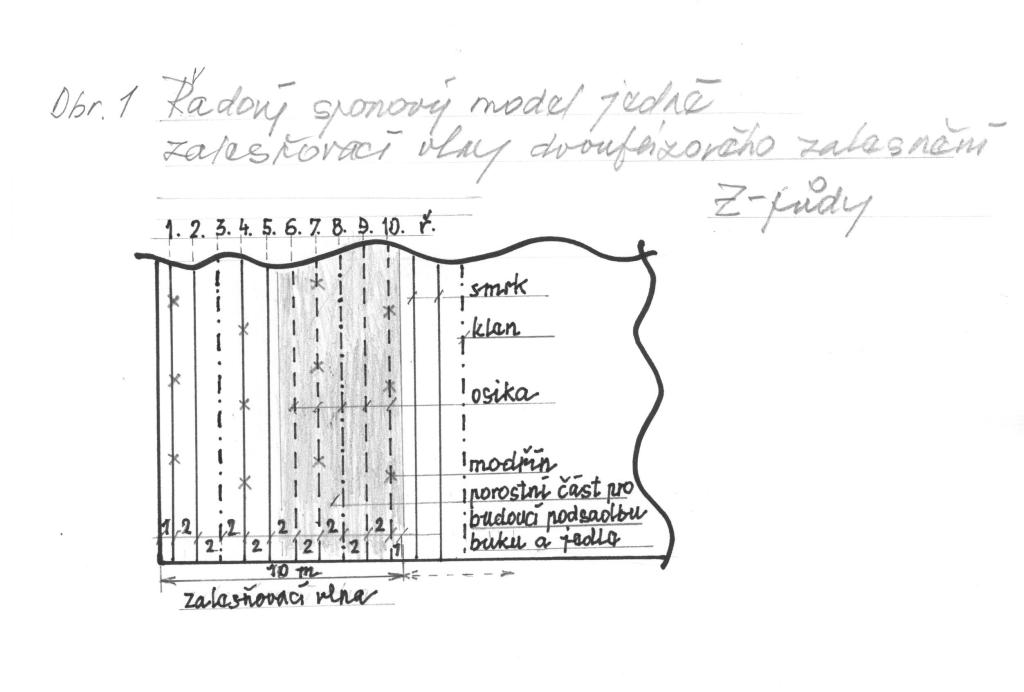 Obr. 1 Řadový sponový model jedné
zalesňovací vlny dvoufázového zalesnění
Z-půdy
1. 2. 3. 4. 5. 6. 7. 8. 9. 10. ř.
smrk
klen
osika
modřín
porostní část pro
budoucí podsadbu
buku a jedle
1 2 2 2 2 2
2 2 2 2 1
10 m
zalesňovací vlna